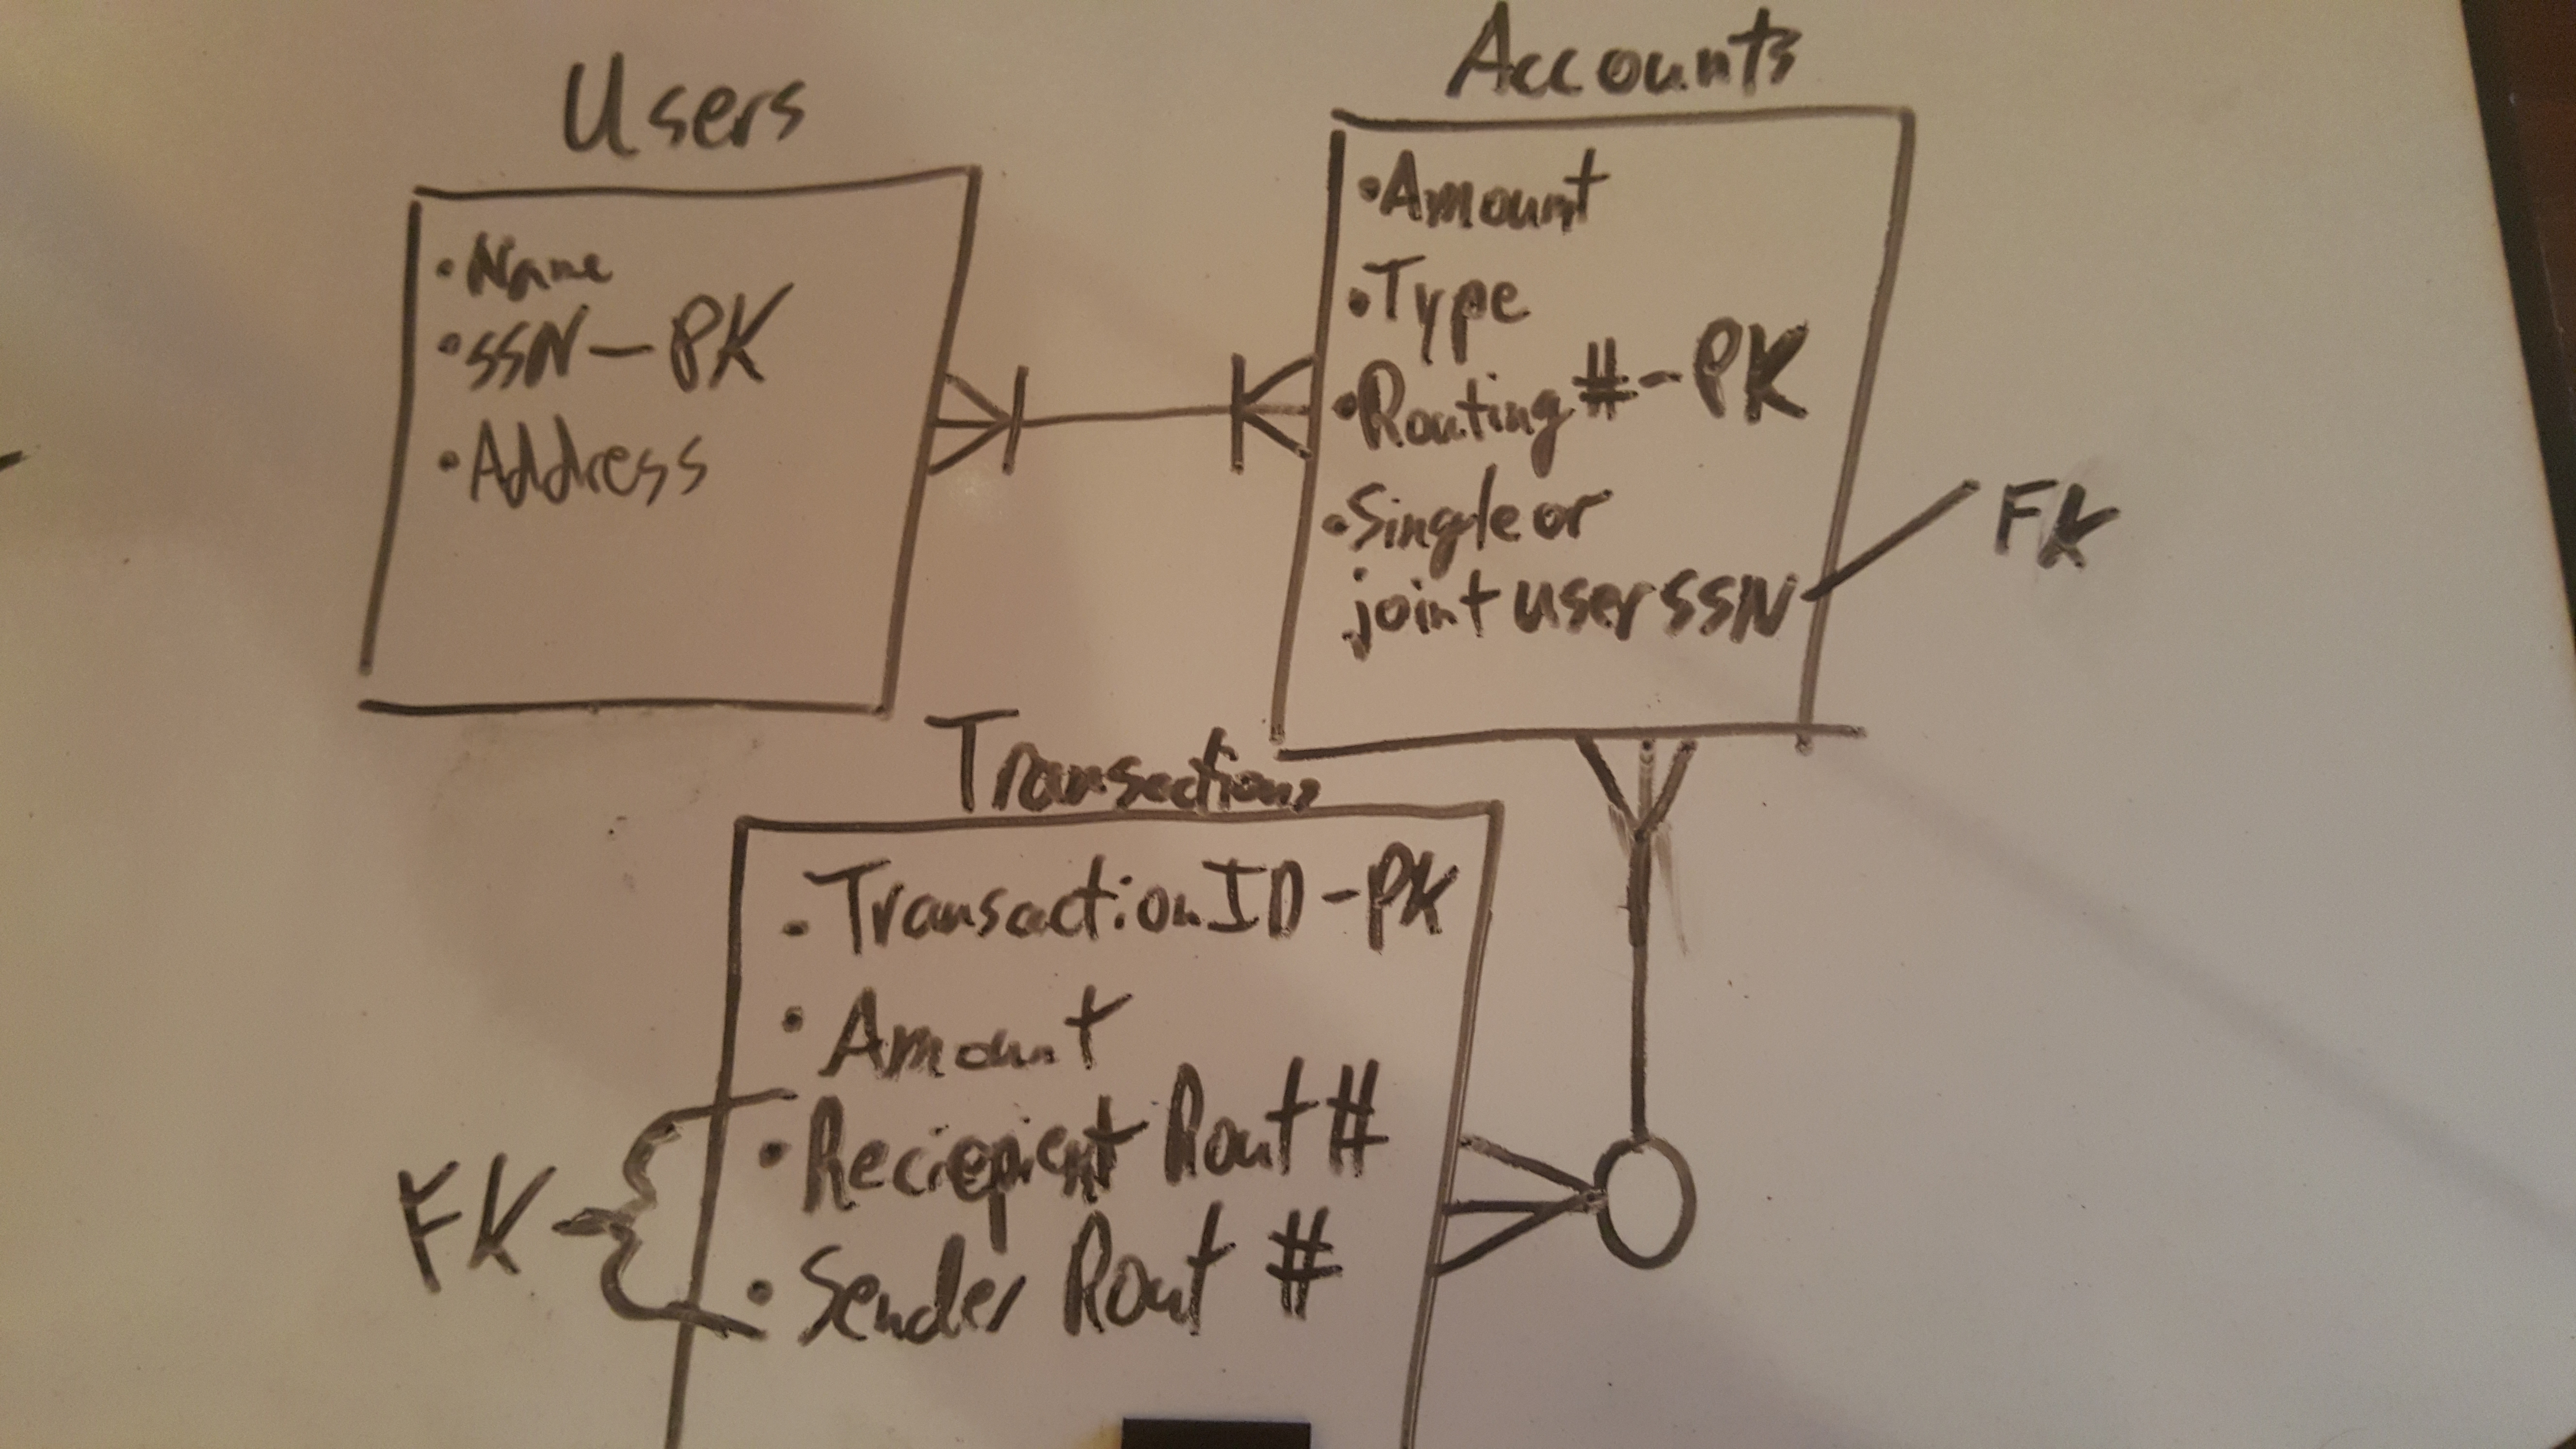 Users
• Name
• SSN - PK
• Address
Accounts
• Amount
• Type
• Routing # - PK
• Single or
joint user SSN
FK
Transections
• Transaction ID - PK
• Amount
• Reciepient Rout #
• Sender Rout #
FK